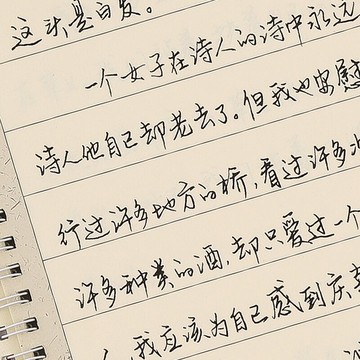 这头是白发。
一个女子在诗人的诗中永远
诗人他自己却老去了。但我也安慰
行过许多地方的桥,看过许多次
许多种类的酒,却只爱过一个
我应该为自己感到庆幸